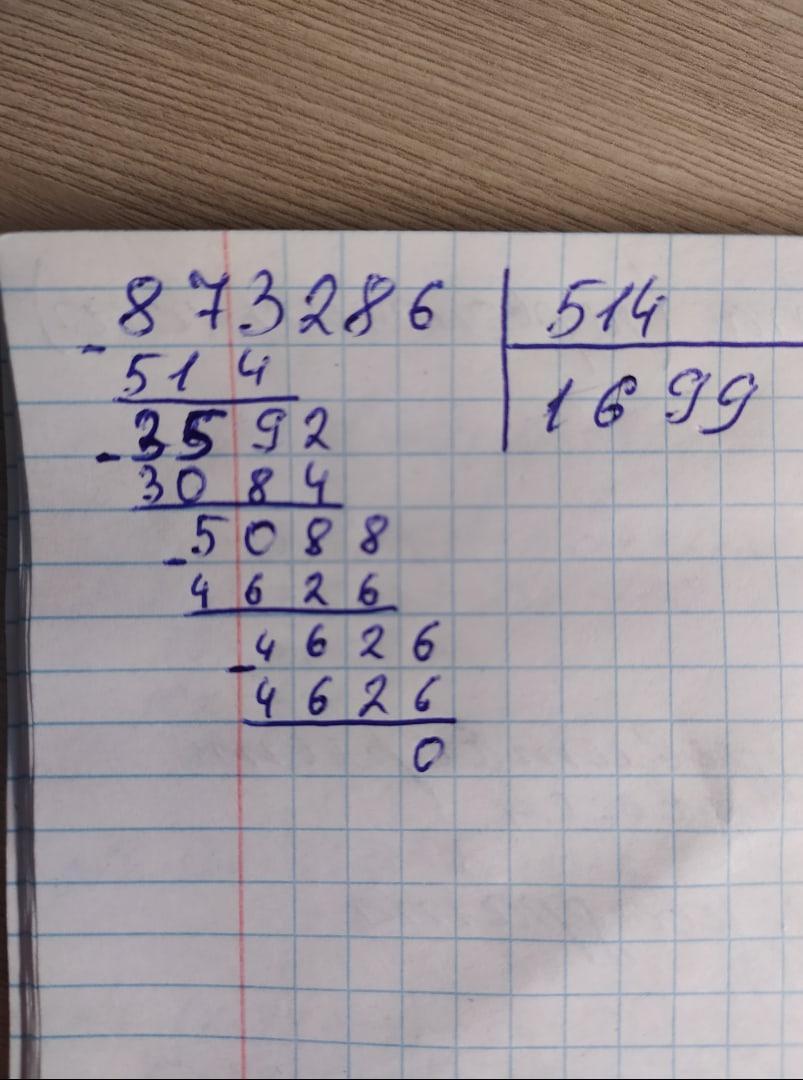 873286 514
514 1699
3592
3084
5088
4626
4626
4626
0